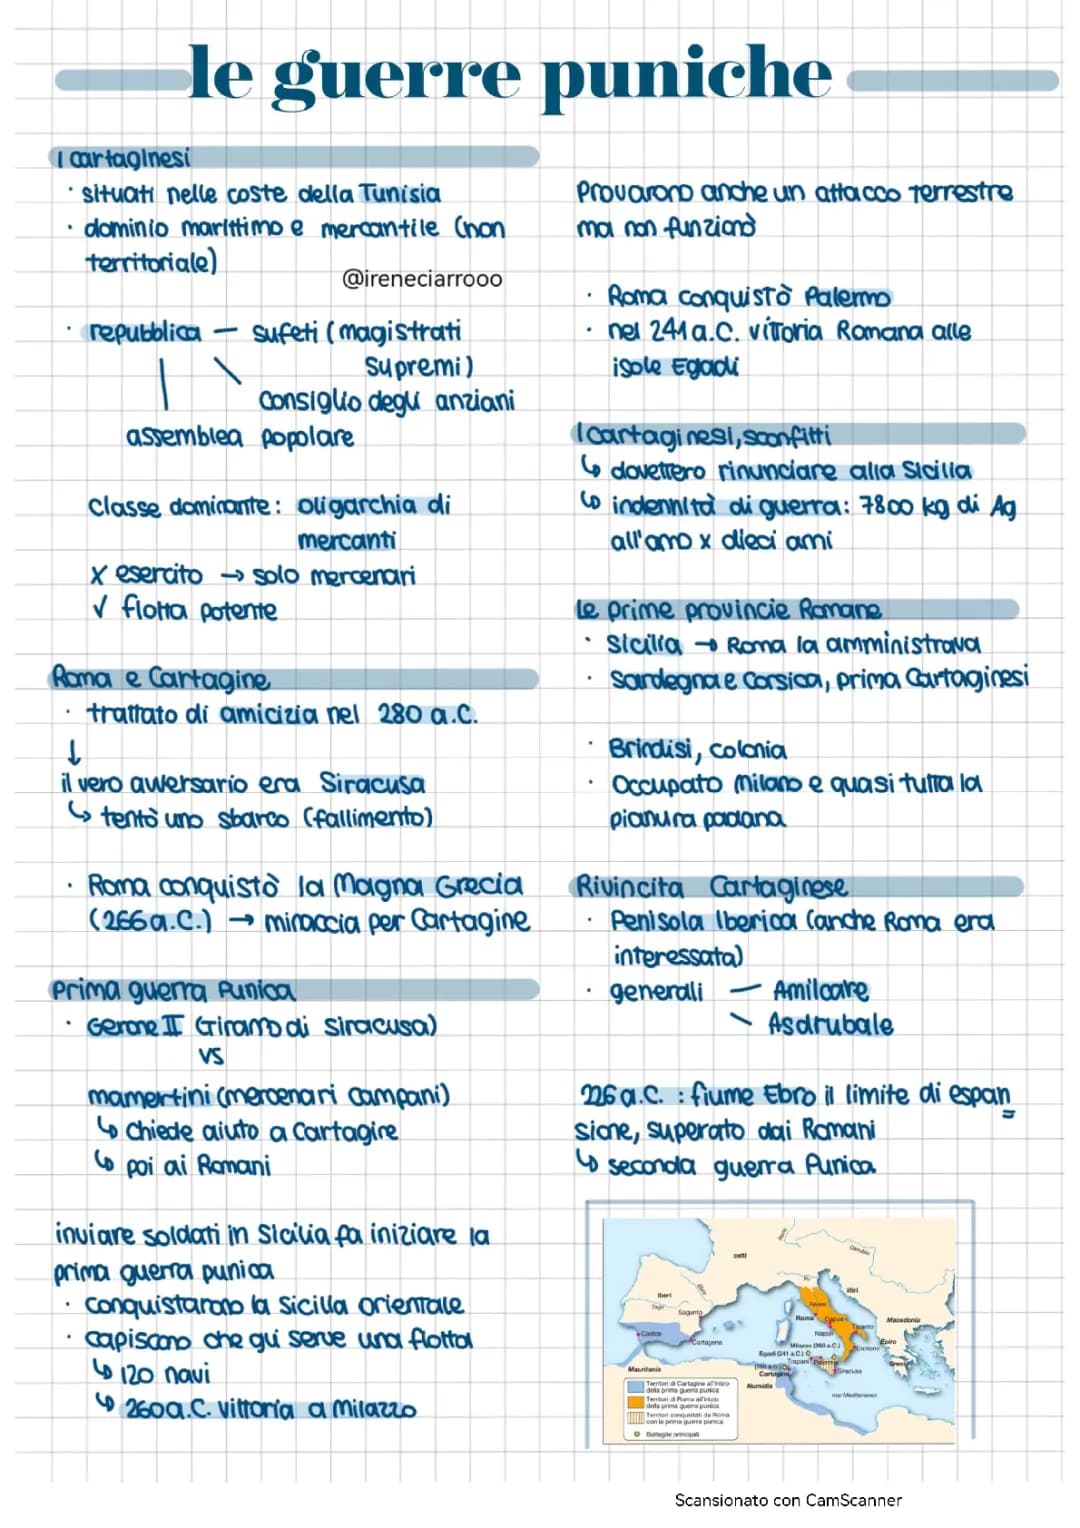 le guerre puniche
I cartaginesi
· situati nelle coste della Tunisia
· dominio marittimo e mercantile (non
territoriale)
@ireneciarrooo
· repubblica — sufeti (magistrati
supremi)
consiglio degli anziani
assemblea popolare
classe dominante: oligarchia di
mercanti
x esercito → solo mercenari
✓ flotta potente
Roma e Cartagine
· trattato di amicizia nel 280 a.C.
↓
il vero avversario era Siracusa
↳ tentò uno sbarco (fallimento)
· Roma conquistò la Magna Grecia
(266 a.C.) → minaccia per Cartagine
Prima guerra Punica
· Gerone II (tiranno di Siracusa)
vs
mamertini (mercenari campani)
↳ chiede aiuto a Cartagine
↳ poi ai Romani
inviare soldati in Sicilia fa iniziare la
prima guerra punica
· conquistarono la Sicilia orientale
· capiscono che gli serve una flotta
↳ 120 navi
↳ 260 a.C. vittoria a Milazzo
Provarono anche un attacco terrestre
ma non funzionò
· Roma conquistò Palermo
· nel 241 a.C. vittoria Romana alle
isole Egadi
I cartaginesi, sconfitti
↳ dovettero rinunciare alla Sicilia
↳ indennità di guerra: 7800 kg di Ag
all'anno x dieci anni
le prime provincie Romane
· Sicilia → Roma la amministrava
· Sardegna e Corsica, prima Cartaginesi
· Brindisi, colonia
· Occupato Milano e quasi tutta la
pianura padana
Rivincita Cartaginese
· Penisola Iberica (anche Roma era
interessata)
· generali — Amilcare
Asdrubale
226 a.C. : fiume Ebro il limite di espan
sione, superato dai Romani
↳ seconda guerra Punica
celti
Danubio
Iberi
Tago
Ebro
Sagunto
Cadice
Cartagena
Po
Illiri
Roma
Capua
Napoli
Taranto
Macedonia
Epiro
Grecia
Milazzo (260 a.C.)
Egadi (241 a.C.)
Trapani
Palermo
Siracusa
Cartagine
Crotone
Mauritania
Numidia
mar Mediterraneo
Territori di Cartagine all'inizio
della prima guerra punica
Territori di Roma all'inizio
della prima guerra punica
Territori conquistati da Roma
con la prima guerra punica
Battaglie principali
Scansionato con CamScanner